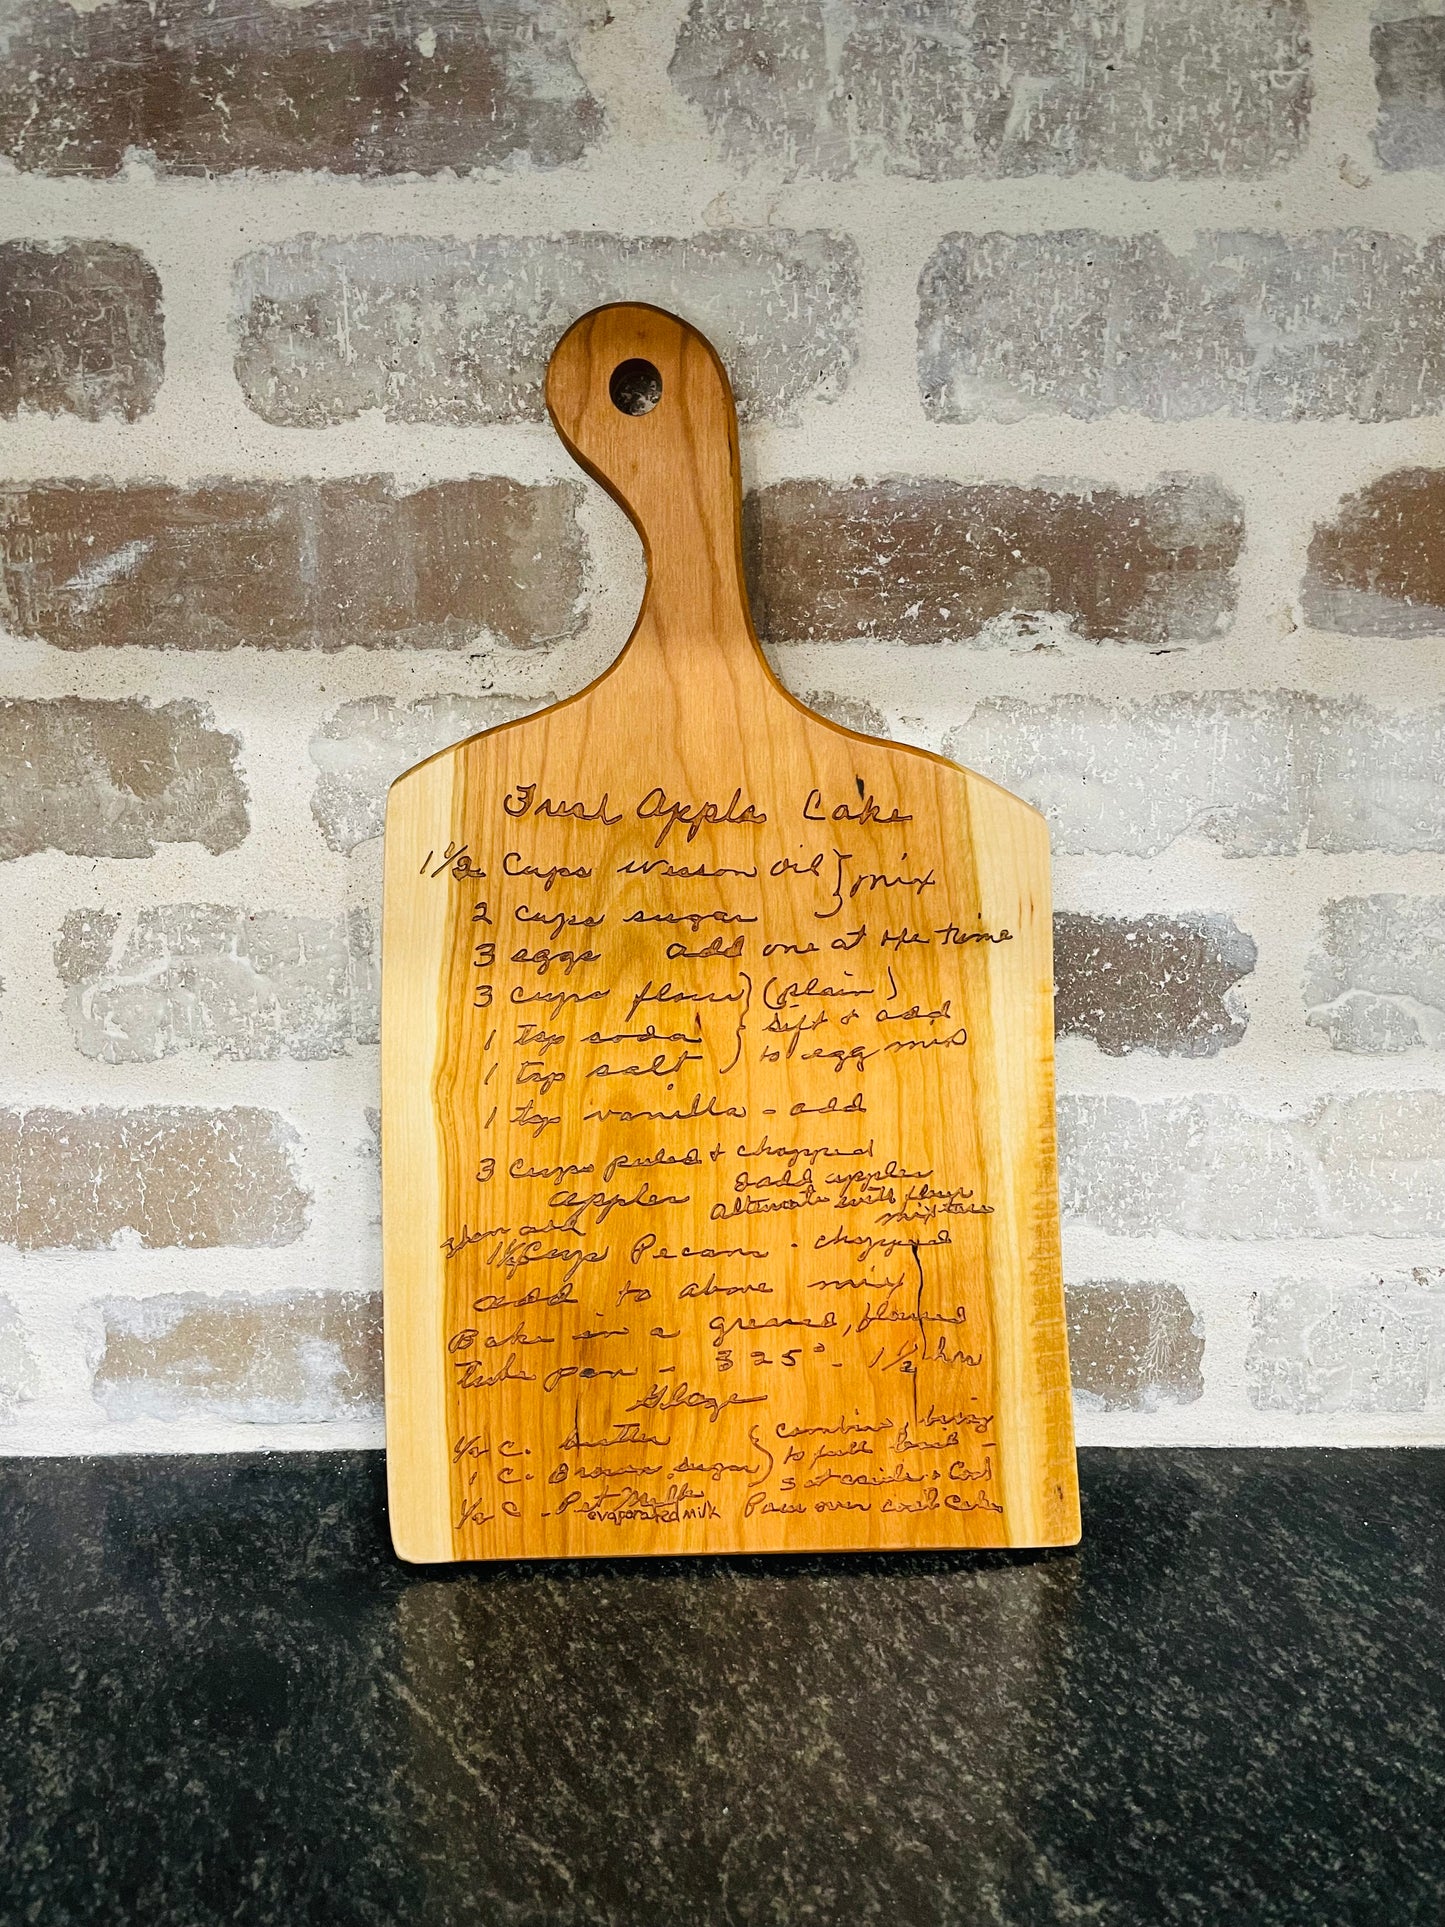 Fresh Apple Cake
1 1/2 Cups Wesson Oil } mix
2 cups sugar
3 eggs add one at the time
3 cups flour } (plain)
1 Tsp soda } sift & add
1 Tsp salt } to egg mix
1 tsp vanilla - add
3 Cups peeled & chopped
apples add apples
alternate with flour
mixture
then add
Cups Pecans - chopped
add to above mix
Bake in a greased, floured
tube pan - 325° - 1 1/2 hrs
Glaze
1/2 C. butter } Combine, bring
1 C. Brown sugar } to full boil -
Set aside & Cool
1/2 C - Pet Milk Pour over cool Cake
evaporated Milk